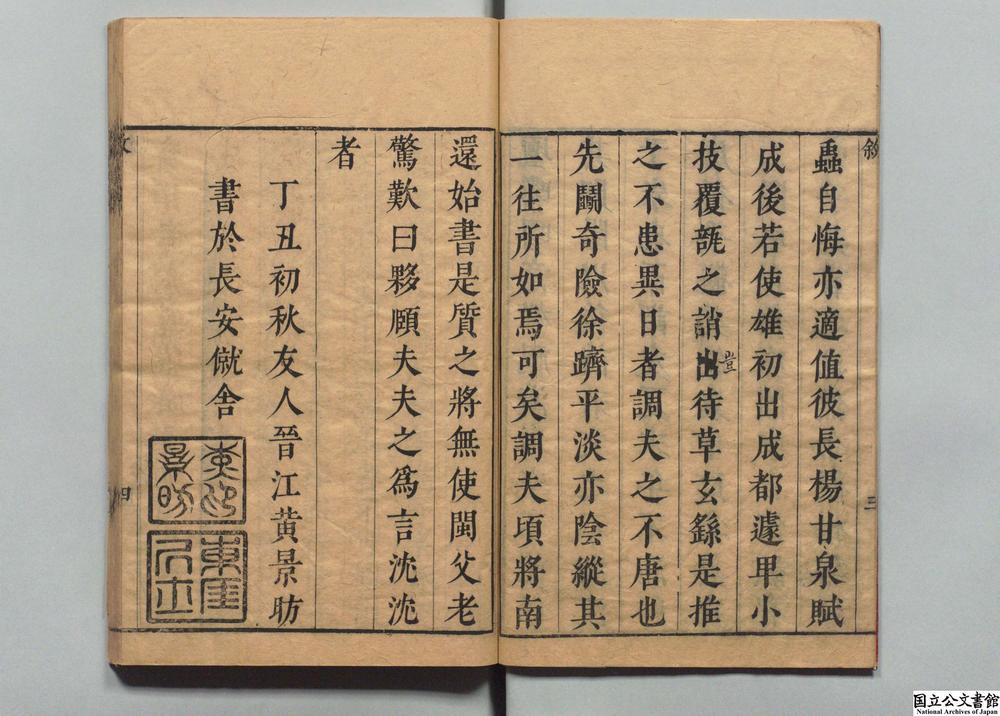 敘
蟲自悔亦適值彼長楊甘泉賦
成後若使雄初出成都遽甲小
技覆瓿之誚出待草玄繇是推
豈
之不患異日者調夫之不唐也
先鬭奇險徐躋平淡亦陰縱其
一往所如焉可矣調夫頃將南
三
還始書是質之將無使閩父老
驚歎曰夥頤夫夫之為言沈沈
者
丁丑初秋友人晉江黃景昉
書於長安僦舍
四
景昉
東崖
国立公文書館
National Archives of Japan